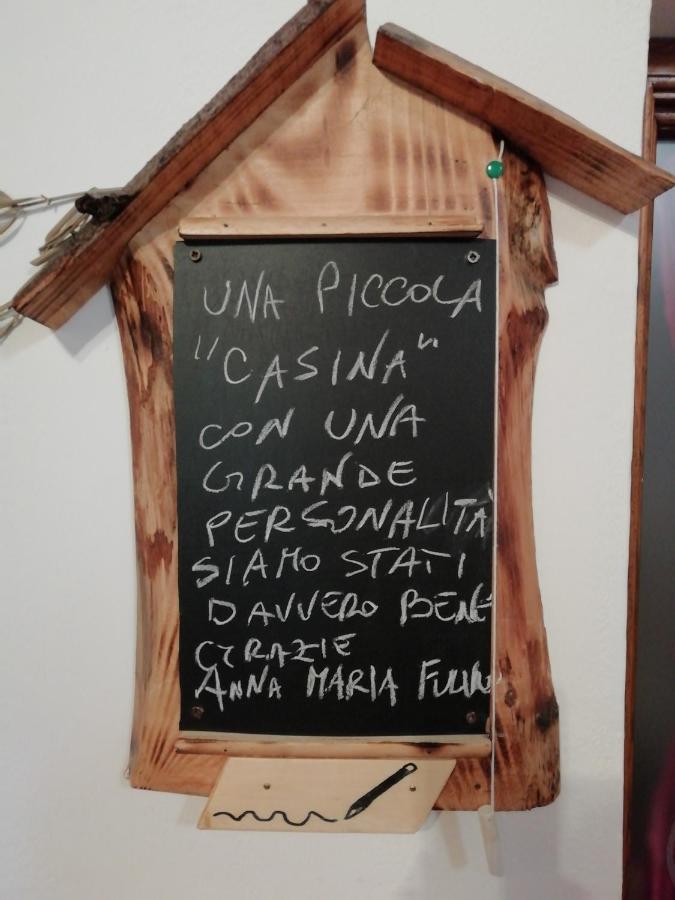 UNA PICCOLA
"CASINA"
CON UNA
GRANDE
PERSONALITÀ
SIAMO STATI
DAVVERO BENE
GRAZIE
ANNA MARIA